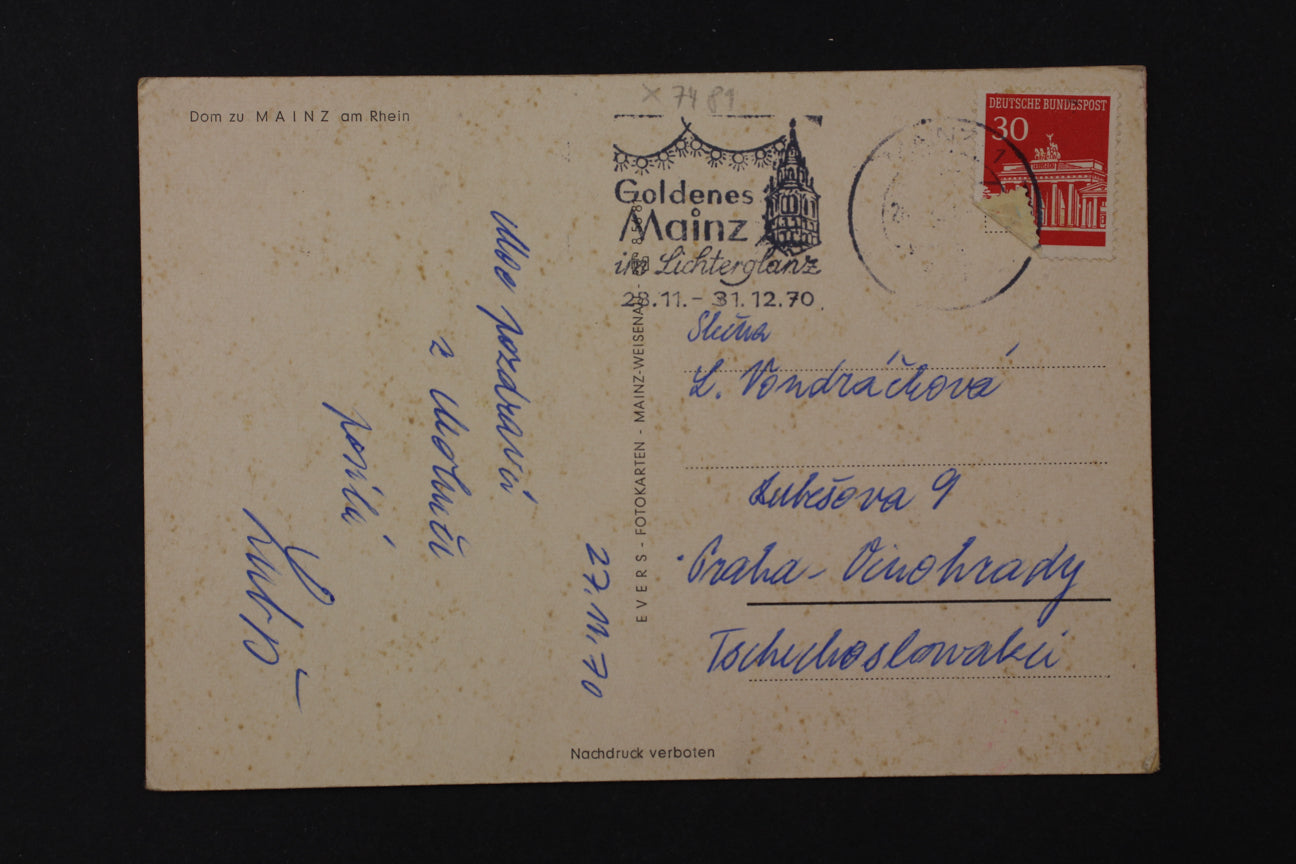 Dom zu MAINZ am Rhein
x 7481
DEUTSCHE BUNDESPOST
30
MAINZ 1
Goldenes
Mainz
im Lichterglanz
28.11.– 31.12.70
pozdravů
z Mohuče
posílá
27.11.70
EVERS - FOTOKARTEN - MAINZ-WEISENAU
Slečna
L. Vondráčková
Lubešova 9
Praha - Vinohrady
Tschechoslowakei
Nachdruck verboten